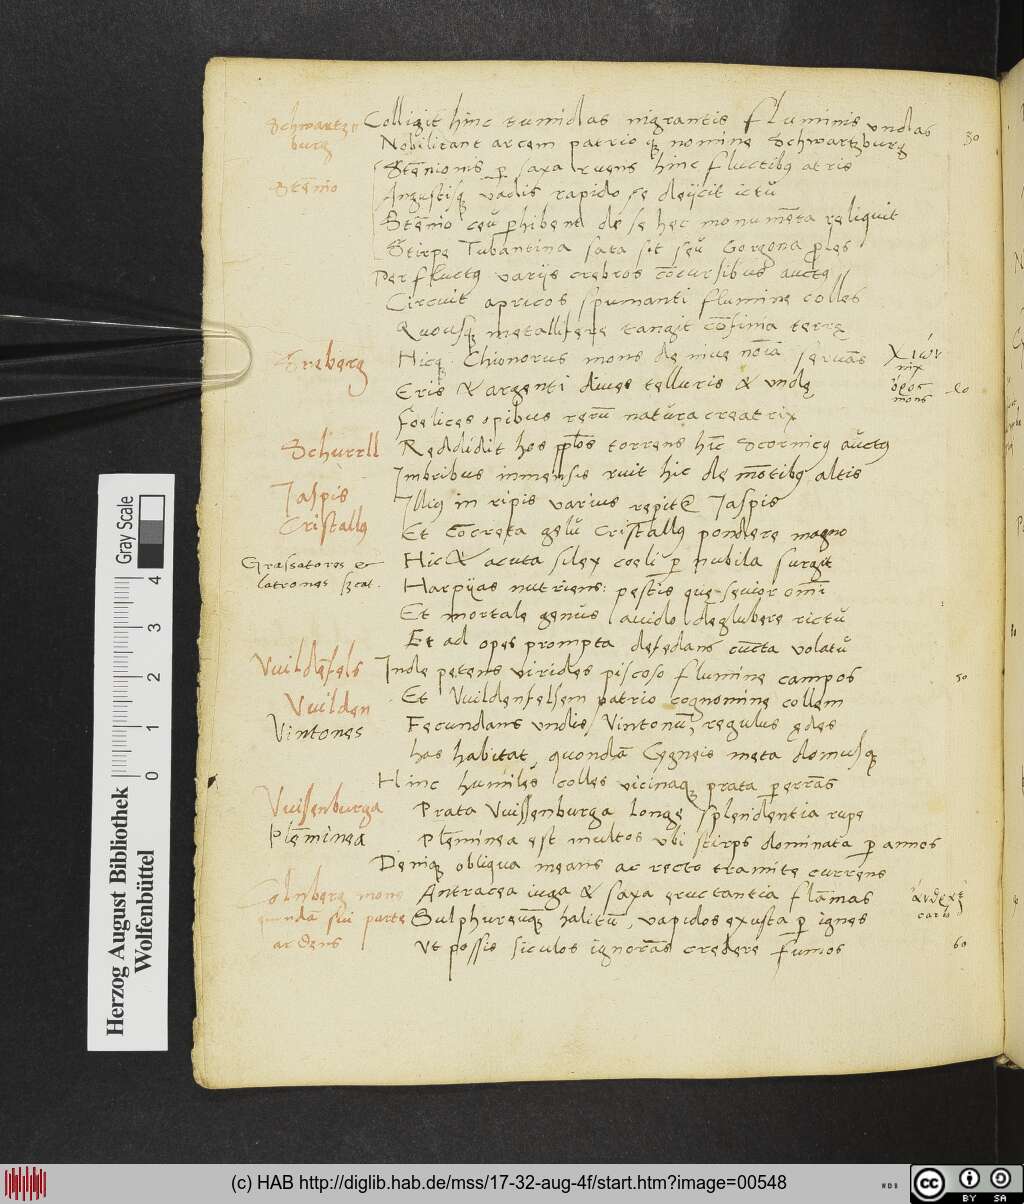 Schwartz=
burg
Colligit hinc tumidas nigrantis fluminis undas
Nobilitant arcem patrio qȝ nomine Schwartzburg
30
Stēnio
Stēnionis p saxa ruens hinc fluctibȝ atris
Angustisqȝ vadis rapido se deijcit ictū
Stēnio ceū phibent de se hec monumēta reliquit
Stirpe Tubantina sata sit seū Gorgona ples
Per fluctȝ varijs crebros cōcursibus auctȝ
Circuit apricos spumanti flumine colles
Quousqȝ metallifere tangit cōfinia terrę
Sneberg
Hicqȝ Chionorus mons de niue nōia servās
χιών
nix
Eris & argenti dives telluris & undę
ὄρος
mons
40
Foelices opibus rerū natura creatrix
Schurell
Reddidit hos torrens hīc Scornicȝ auctȝ
Imbribus immensis ruit hic de mōtibȝ altis
Iaspis
Illiȝ in ripis varius Iaspis
Cristallȝ
Et cōcreta gelū Cristallȝ pondere magno
Grassatores et
latrones
Hic & acuta silex coeli p nubila surgit
Harpyias nutriens: pestis que sevior omī
Et mortale genus avido deglubere rictū
Et ad opes prompta defedans cūcta volatū
Vuildēfels
Inde petens virides piscoso flumine campos
50
Et Vuildenfelsem patrio cognomine collem
Vuilden
Vintones
Fecundans undis, Vintonū, regulus ędes
has habitat, quondā Cygneis meta domusqȝ
Hinc humiles colles vicinaqȝ prata perrās
Vuissenburga
Prata Vuissenburga longe splendentia rupe
Plēminea
Plēminea est multos ubi stirps dominata p annos
Deniqȝ obliqua means ac recto tramite currens
Colnberg mons
Antracea iuga & saxa eructantia flāmas
ἄνθραξ
carbo
quadā sui parte
Sulphureūqȝ halitū, vapidos exusta p ignes
ardens
Ut possis siculos ignorās credere fumos
60
Gray Scale
0 1 2 3 4
Herzog August Bibliothek
Wolfenbüttel
(c) HAB http://diglib.hab.de/mss/17-32-aug-4f/start.htm?image=00548
WDB
cc BY SA